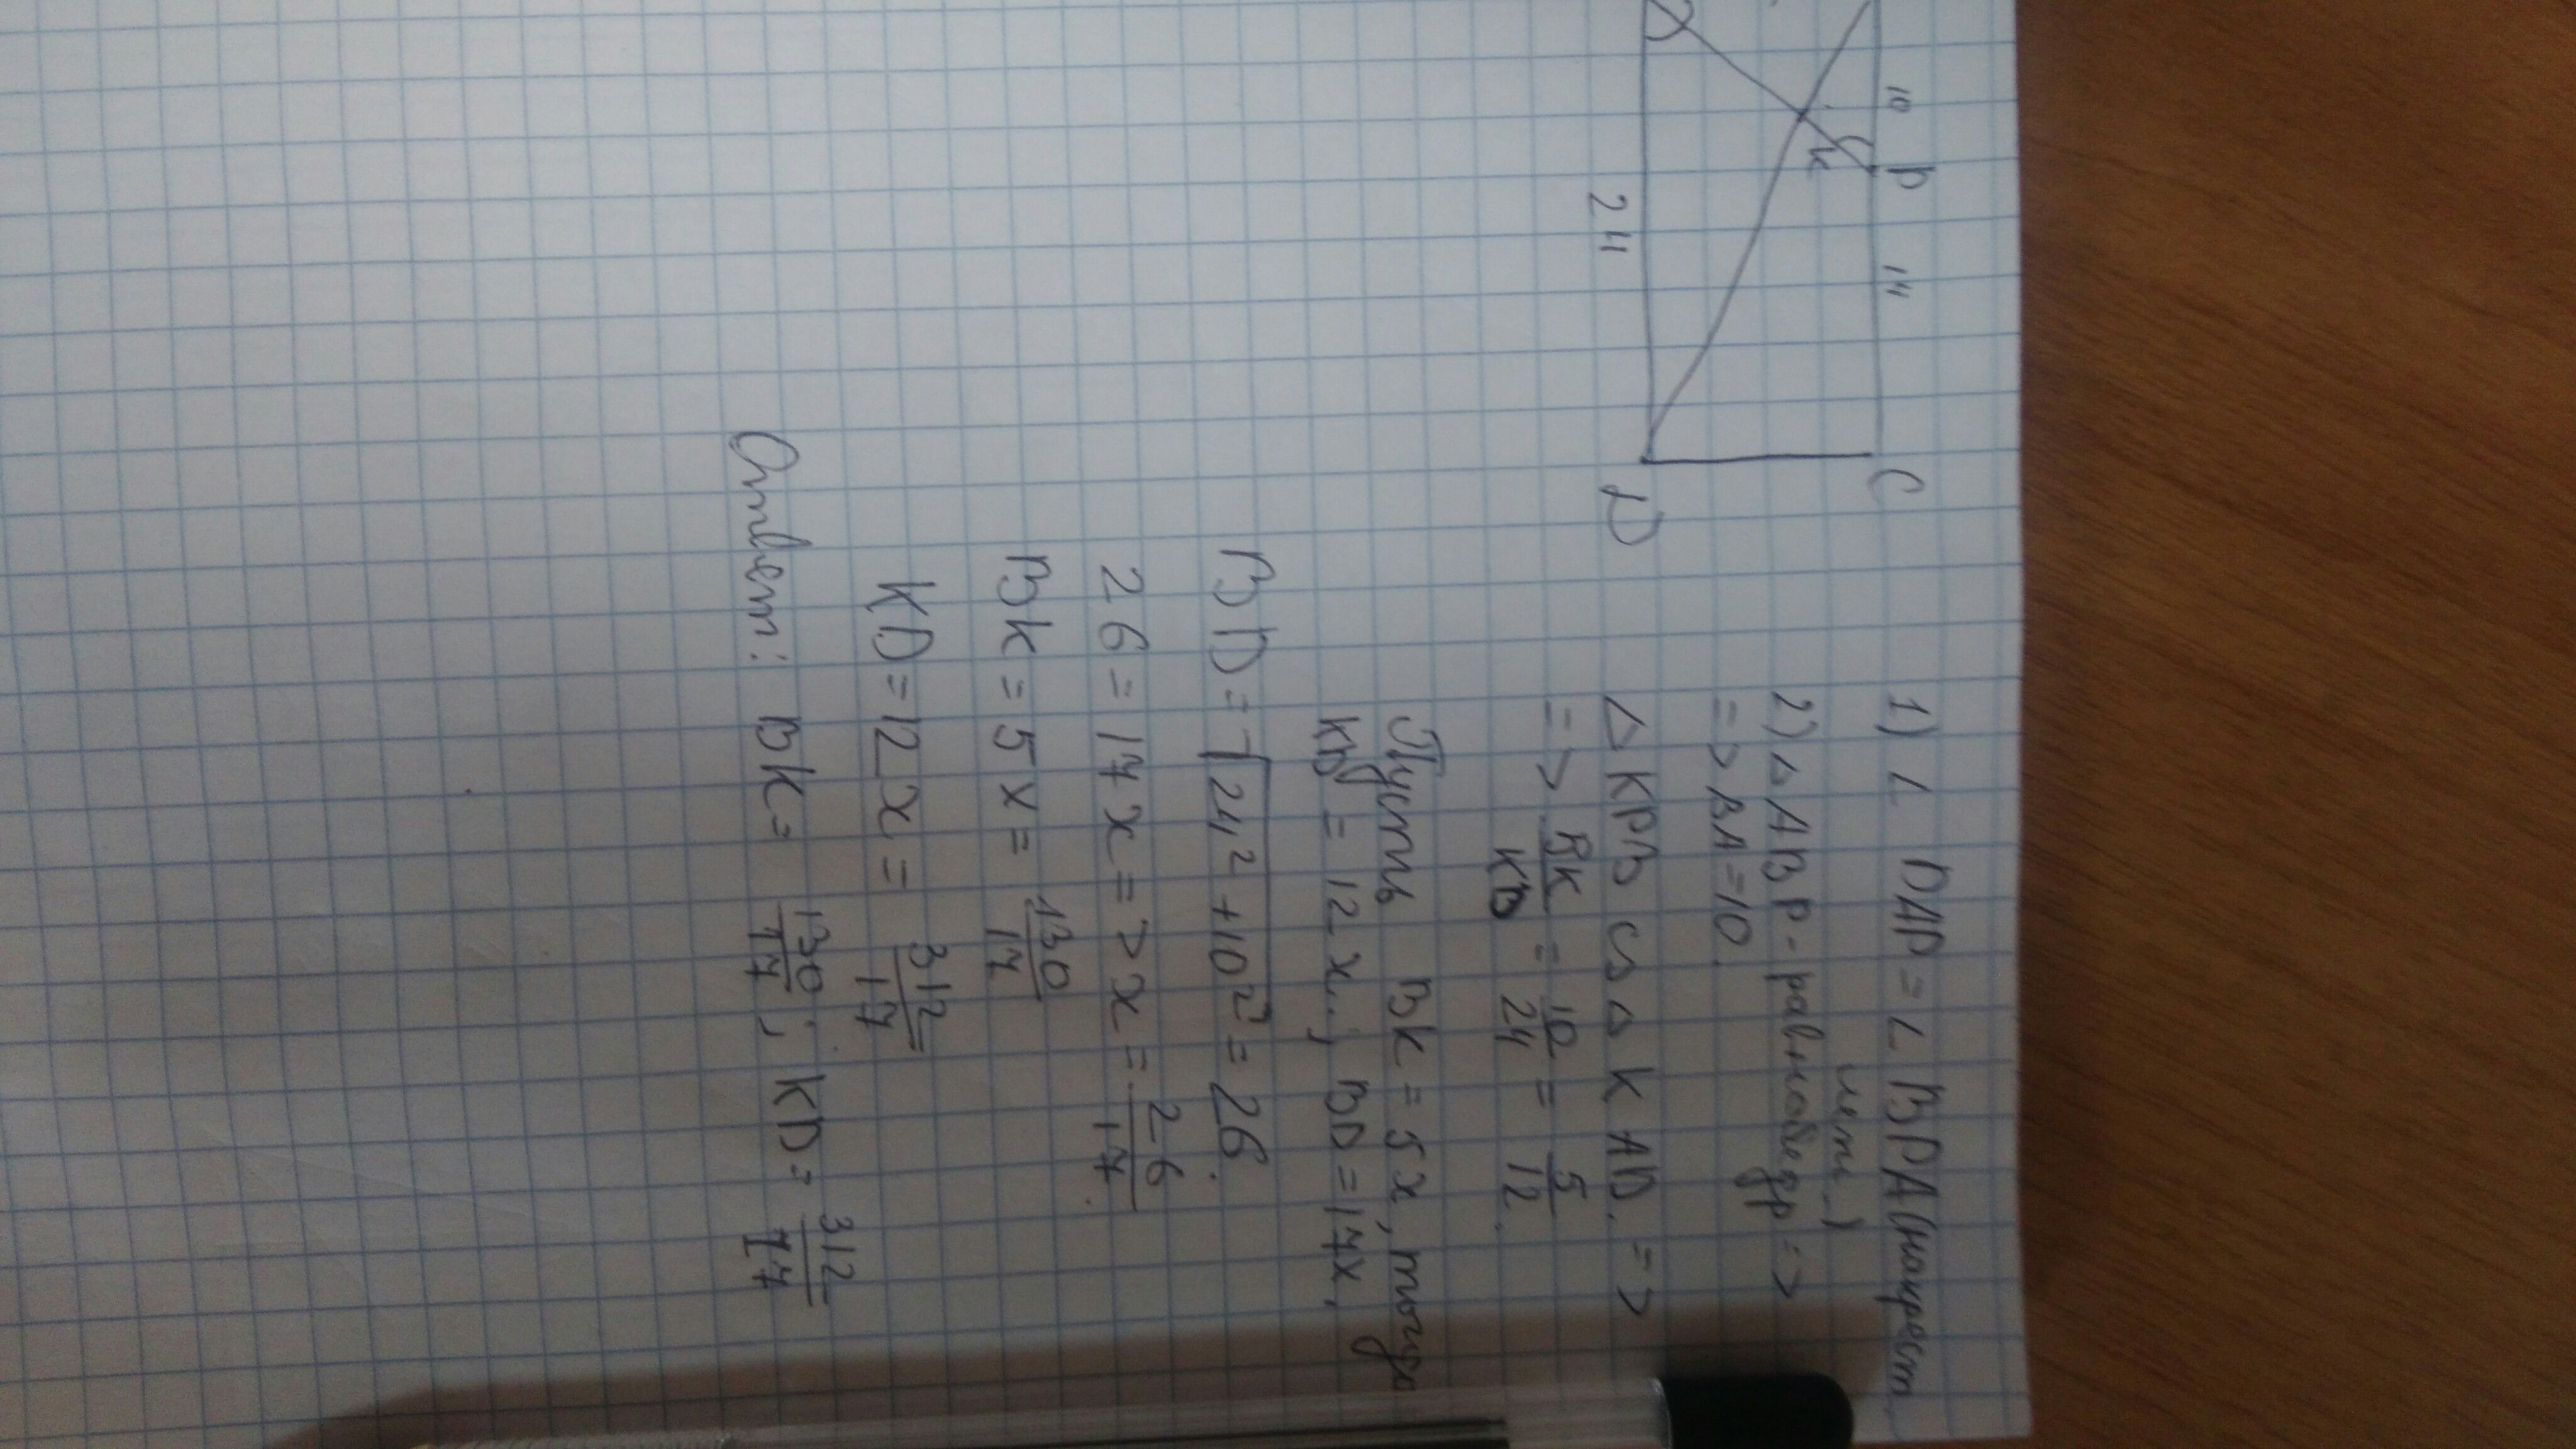 10 P 14 C
K
24 D
1) ∠ DAP = ∠ BPA (накрест
леж.)
2) △ ABP - равнобедр =>
=> BA = 10.
△ KPB ∽ △ KAD. =>
=> BK/KD = 10/24 = 5/12.
Пусть BK = 5x, тогда
KD = 12x.; BD = 17x.
BD = √24² + 10² = 26.
26 = 17x => x = 26/17.
BK = 5x = 130/17
KD = 12x = 312/17
Ответ: BK = 130/17; KD = 312/17